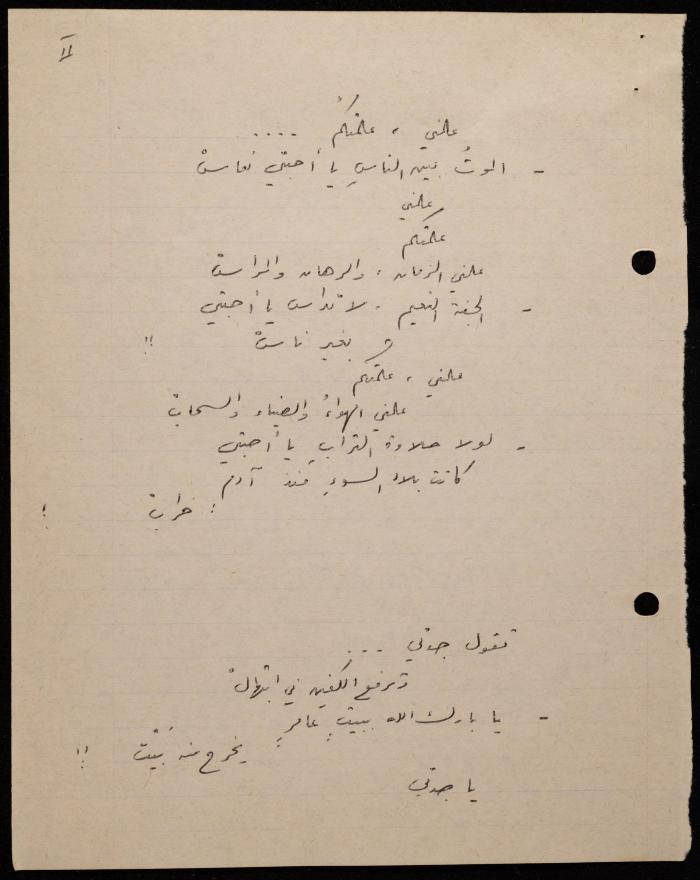 علمني ، علمتكمُ ....
- الموتُ بين الناسِ يا أحبتي نعاسْ
علمني
علمتكم
علمني الزمان ، والرهان والمراسْ
- الجنة النعيم . لا تداس يا أحبتي
بغير ناسْ !!
علمني ، علمتكم
علمني الهواءُ والضياء والسحابْ
- لولا صلاة الترابِ يا أحبتي
كانت بلاد السوءِ منذ آدم
خرابْ !
تقول جدتي ...
وترفع الكفين في ابتهالْ
- يا بارك الله ببيتٍ عامرٍ
يخرج منه بَيْتْ !!
يا جدتي